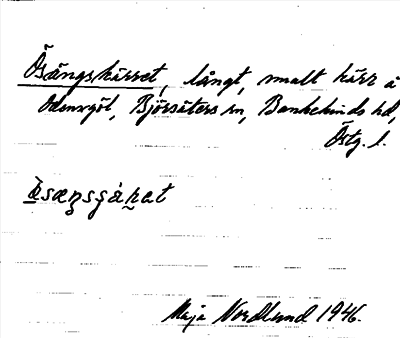 Ösängskärret, långt, smalt kärr å
Odensgöl, Björsäters sn, Bankekinds hd,
Östg. l.
Maja Nordlund 1946.